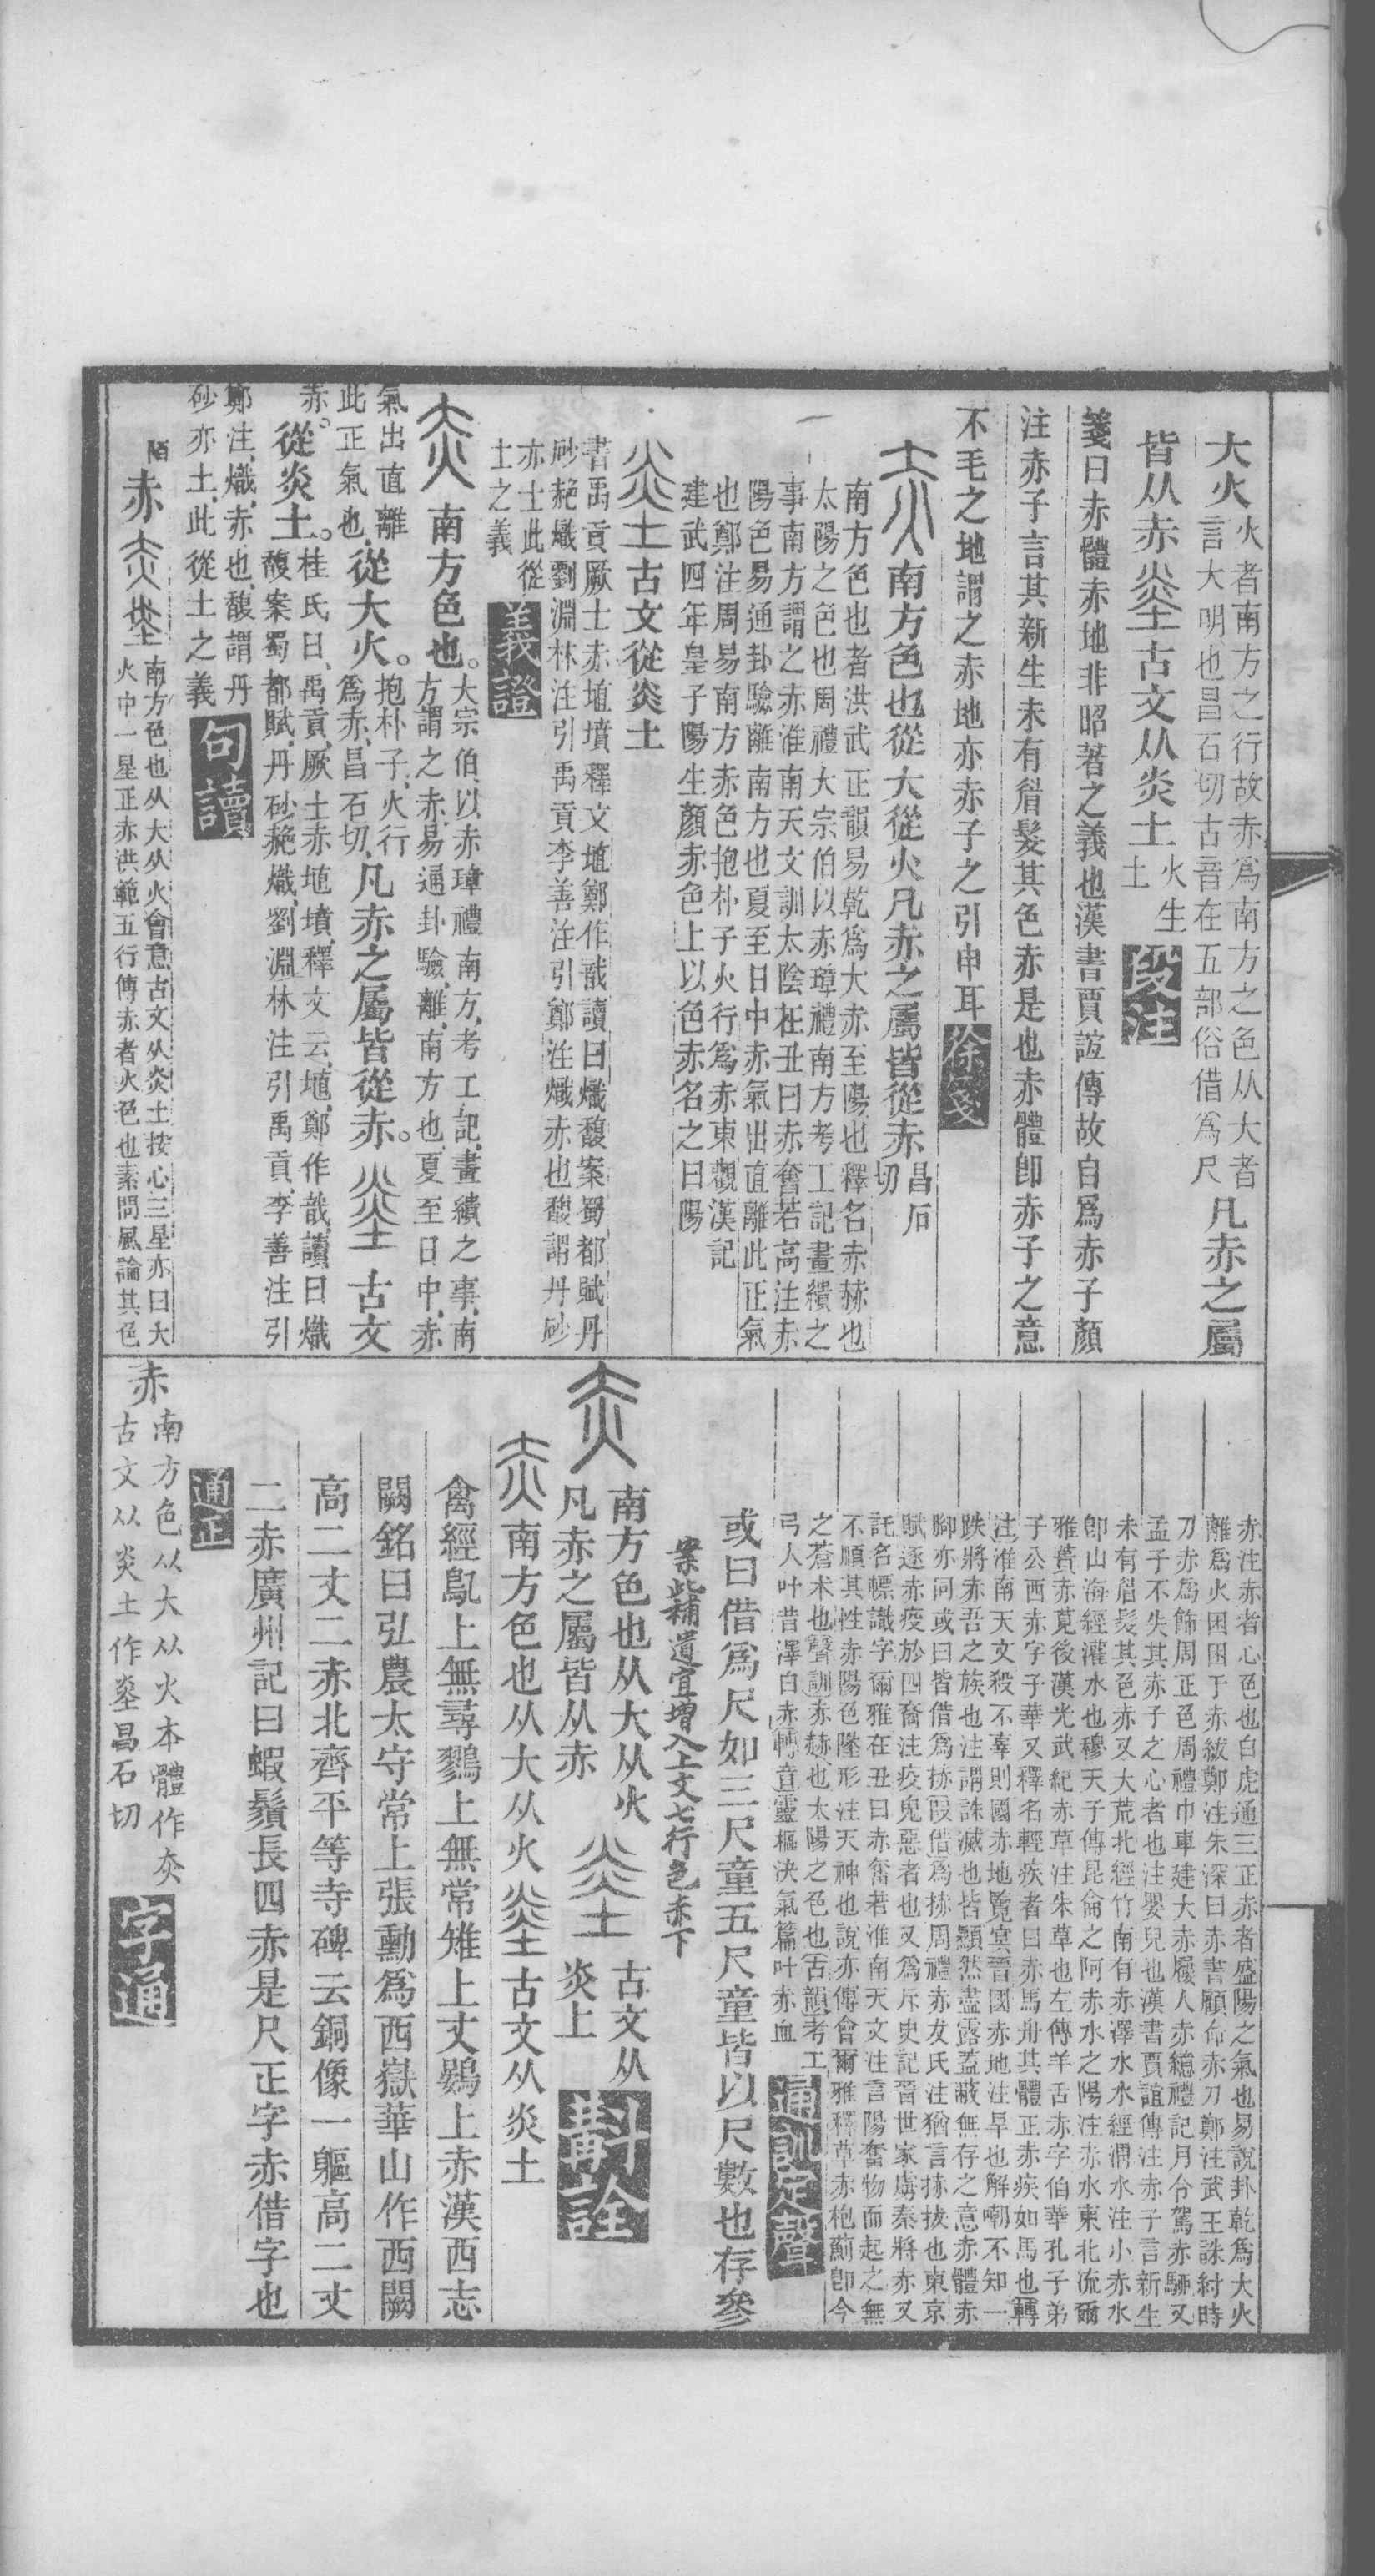 大火火者南方之行故赤爲南方之色从大者
言大明也昌石切古音在五部俗借爲尺凡赤之屬
皆从赤烾古文从炎土火生
土段注
箋曰赤體赤地非昭著之義也漢書賈誼傳故自爲赤子顏
注赤子言其新生未有眉髮其色赤是也赤體卽赤子之意
不毛之地謂之赤地亦赤子之引申耳徐箋
赤南方色也從大從火凡赤之屬皆從赤昌石
切
南方色也者洪武正韻易乾爲大赤至陽也釋名赤赫也
太陽之色也周禮大宗伯以赤璋禮南方考工記畫繢之
事南方謂之赤淮南天文訓太陰在丑曰赤奮若高注赤
陽色易通卦驗離南方也夏至日中赤氣出直離此正氣
也鄭注周易南方赤色抱朴子火行爲赤東觀漢記
建武四年皇子陽生顏赤色上以色赤名之曰陽
烾古文從炎土
書禹貢厥土赤埴墳釋文埴鄭作戠讀曰熾馥案蜀都賦丹
砂赩熾劉淵林注引禹貢李善注引鄭注熾赤也馥謂丹砂
亦土此從
土之義義證
赤南方色也。大宗伯、以赤璋禮南方、考工記、畫繢之事、南
方謂之赤、易通卦驗、離、南方也、夏至日中、赤
氣出直離
此正氣也、從大火。抱朴子、火行
爲赤、昌石切、凡赤之屬皆從赤。烾古文
赤。從炎土。桂氏曰、禹貢、厥土赤埴墳、釋文云、埴、鄭作戠、讀曰熾
馥案蜀都賦、丹砂赩熾、劉淵林注引禹貢、李善注引
鄭注、熾、赤也、馥謂丹
砂亦土、此從土之義句讀
陌赤赤烾南方色也从大从火會意古文从炎土按心三星亦曰大
火中一星正赤洪範五行傳赤者火色也素問風論其色
赤注赤者心色也白虎通三正赤者盛陽之氣也易說卦乾爲大火
離爲火困困于赤紱鄭注朱深曰赤書顧命赤刀鄭注武王誅紂時
刀赤爲飾周正色周禮巾車建大赤履人赤繶禮記月令駕赤駵又
孟子不失其赤子之心者也注嬰兒也漢書賈誼傳注赤子言新生
未有眉髮其色赤又大荒北經竹南有赤澤水水經泿水注小赤水
卽山海經灌水也穆天子傳昆侖之阿赤水之陽注赤水東北流爾
雅蕢赤莧後漢光武紀赤草注朱草也左傳羊舌赤字伯華孔子弟
子公西赤字子華又釋名輕疾者曰赤馬舟其體正赤疾如馬也轉
注淮南天文殺不辜則國赤地覽冥晉國赤地注旱也解嘲不知一
跌將赤吾之族也注謂誅滅也皆顯然盡露蓋蔽無存之意赤體赤
腳亦同或曰皆借爲捇叚借爲捇周禮赤犮氏注猶言捇拔也東京
賦逐赤疫於四裔注疫鬼惡者也又爲斥史記晉世家虜秦將赤又
託名幖識字爾雅在丑曰赤奮若淮南天文注言陽奮物而起之無
不順其性赤陽色墬形注天神也說亦傅會爾雅釋草赤枹薊卽今
之蒼朮也聲訓赤赫也太陽之色也古韻考工
弓人叶昔澤白赤轉音靈樞決氣篇叶赤血通訓定聲
或曰借爲尺如三尺童五尺童皆以尺數也存參
案此補遺宜增入上文七行色赤下
赤南方色也从大从火烾古文从
凡赤之屬皆从赤炎上斠詮
赤南方色也从大从火烾古文从炎土
禽經鳧上無尋鷚上無常雉上丈鷃上赤漢西志
闕銘曰弘農太守常上張勳爲西嶽華山作西闕
高二丈二赤北齊平等寺碑云銅像一軀高二丈
二赤廣州記曰蝦鬚長四赤是尺正字赤借字也
通正
赤南方色从大从火本體作灻
古文从炎土作烾昌石切字通